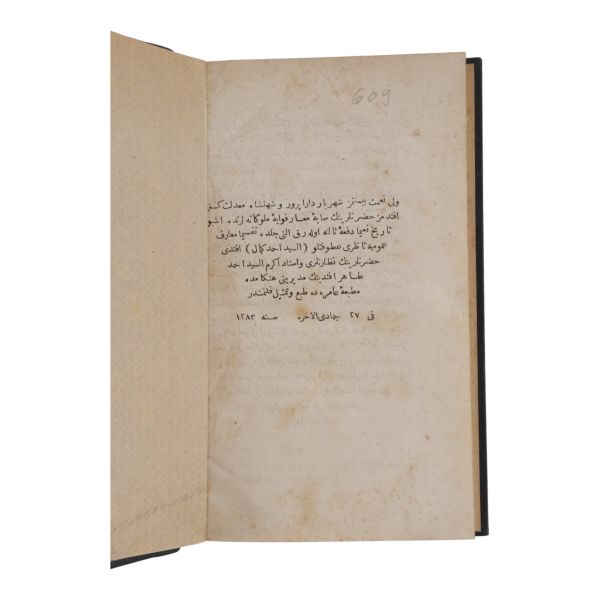 609
ولی نعمت بیمنتمز شهریار دارا پرور و شهنشاه معدلت کستر
افندمز حضرتلرینك سایهٔ معارفوایهٔ ملوکانه لرنده اشبو
تاریخ نعیما دفعهٔ ثالثه اوله رق التی جلده تقسیما معارف
عمومیه ناظری عطوفتلو (السید احمد کمال) افندی
حضرتلرینك نظارتلری و استاد اکرم السید احمد
طاهر افندینك مدیریتی هنکامنده
مطبعهٔ عامره ده طبع و تمثیل قلنمشدر
فی ٢٧ جمادی الاخره سنه ١٢٨٣